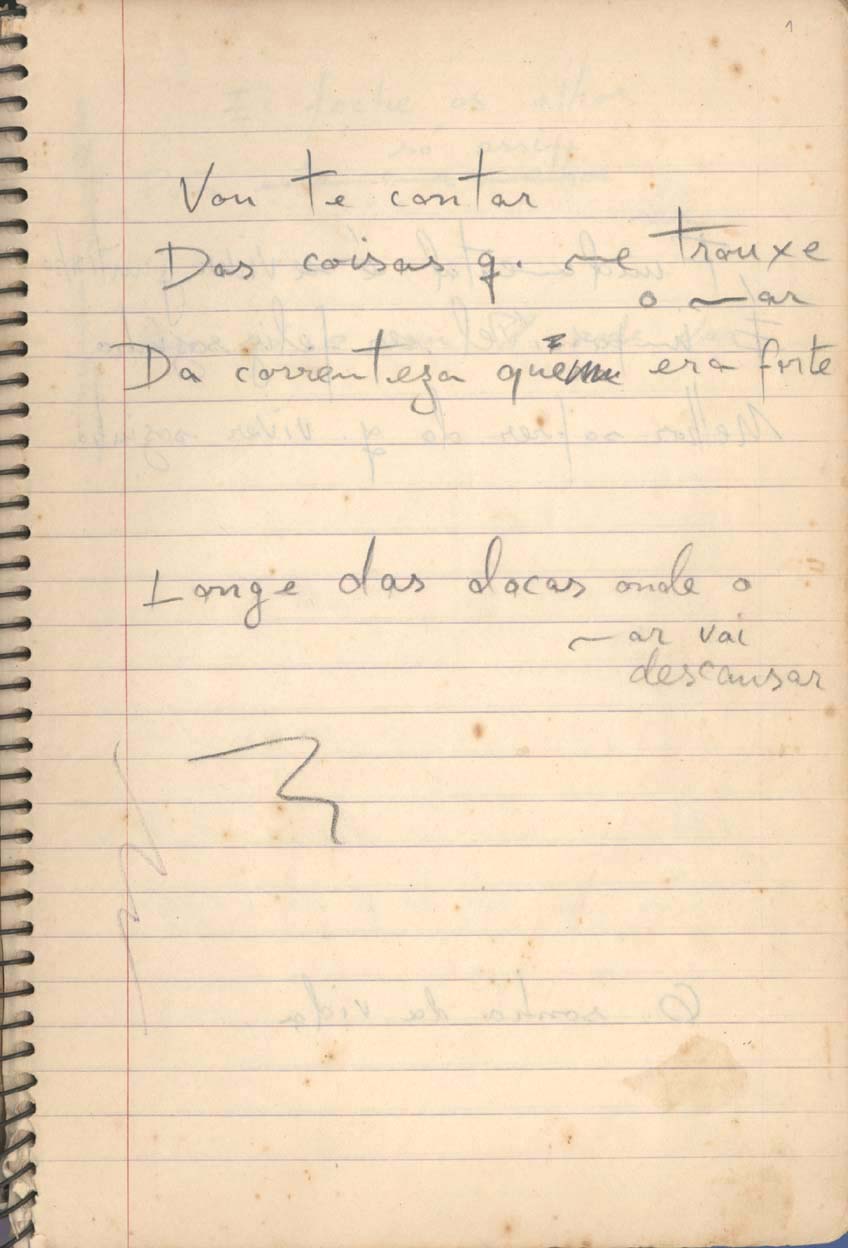 1
Vou te contar
Das coisas q. me trouxe
o mar
Da correnteza que era forte
Longe das docas onde o
mar vai
descansar